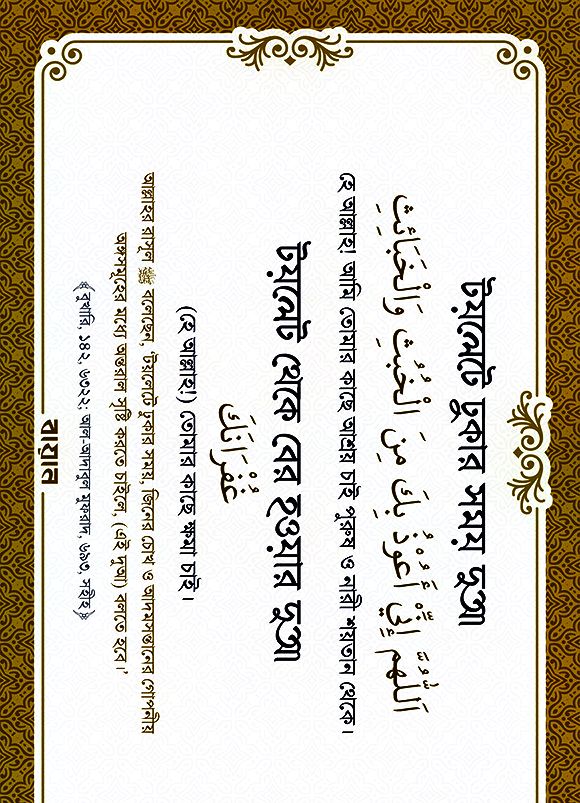 টয়লেটে ঢুকার সময় দুআ
اَللّٰهُمَّ إِنِّيْ أَعُوْذُ بِكَ مِنَ الْخُبُثِ وَالْخَبَائِثِ
হে আল্লাহ! আমি তোমার কাছে আশ্রয় চাই পুরুষ ও নারী শয়তান থেকে।
টয়লেট থেকে বের হওয়ার দুআ
غُفْرَانَكَ
(হে আল্লাহ!) তোমার কাছে ক্ষমা চাই।
আল্লাহর রাসূল ﷺ বলেছেন, 'টয়লেটে ঢুকার সময়, জিনের চোখ ও আদমসন্তানের গোপনীয়
অঙ্গসমূহের মধ্যে অন্তরাল সৃষ্টি করতে চাইলে, (এই দুআ) বলতে হবে।'
﴾বুখারি, ১৪২, ৬৩২২; আল-আদাবুল মুফরাদ, ৬৯৩, সহীহ﴿
বায়ান